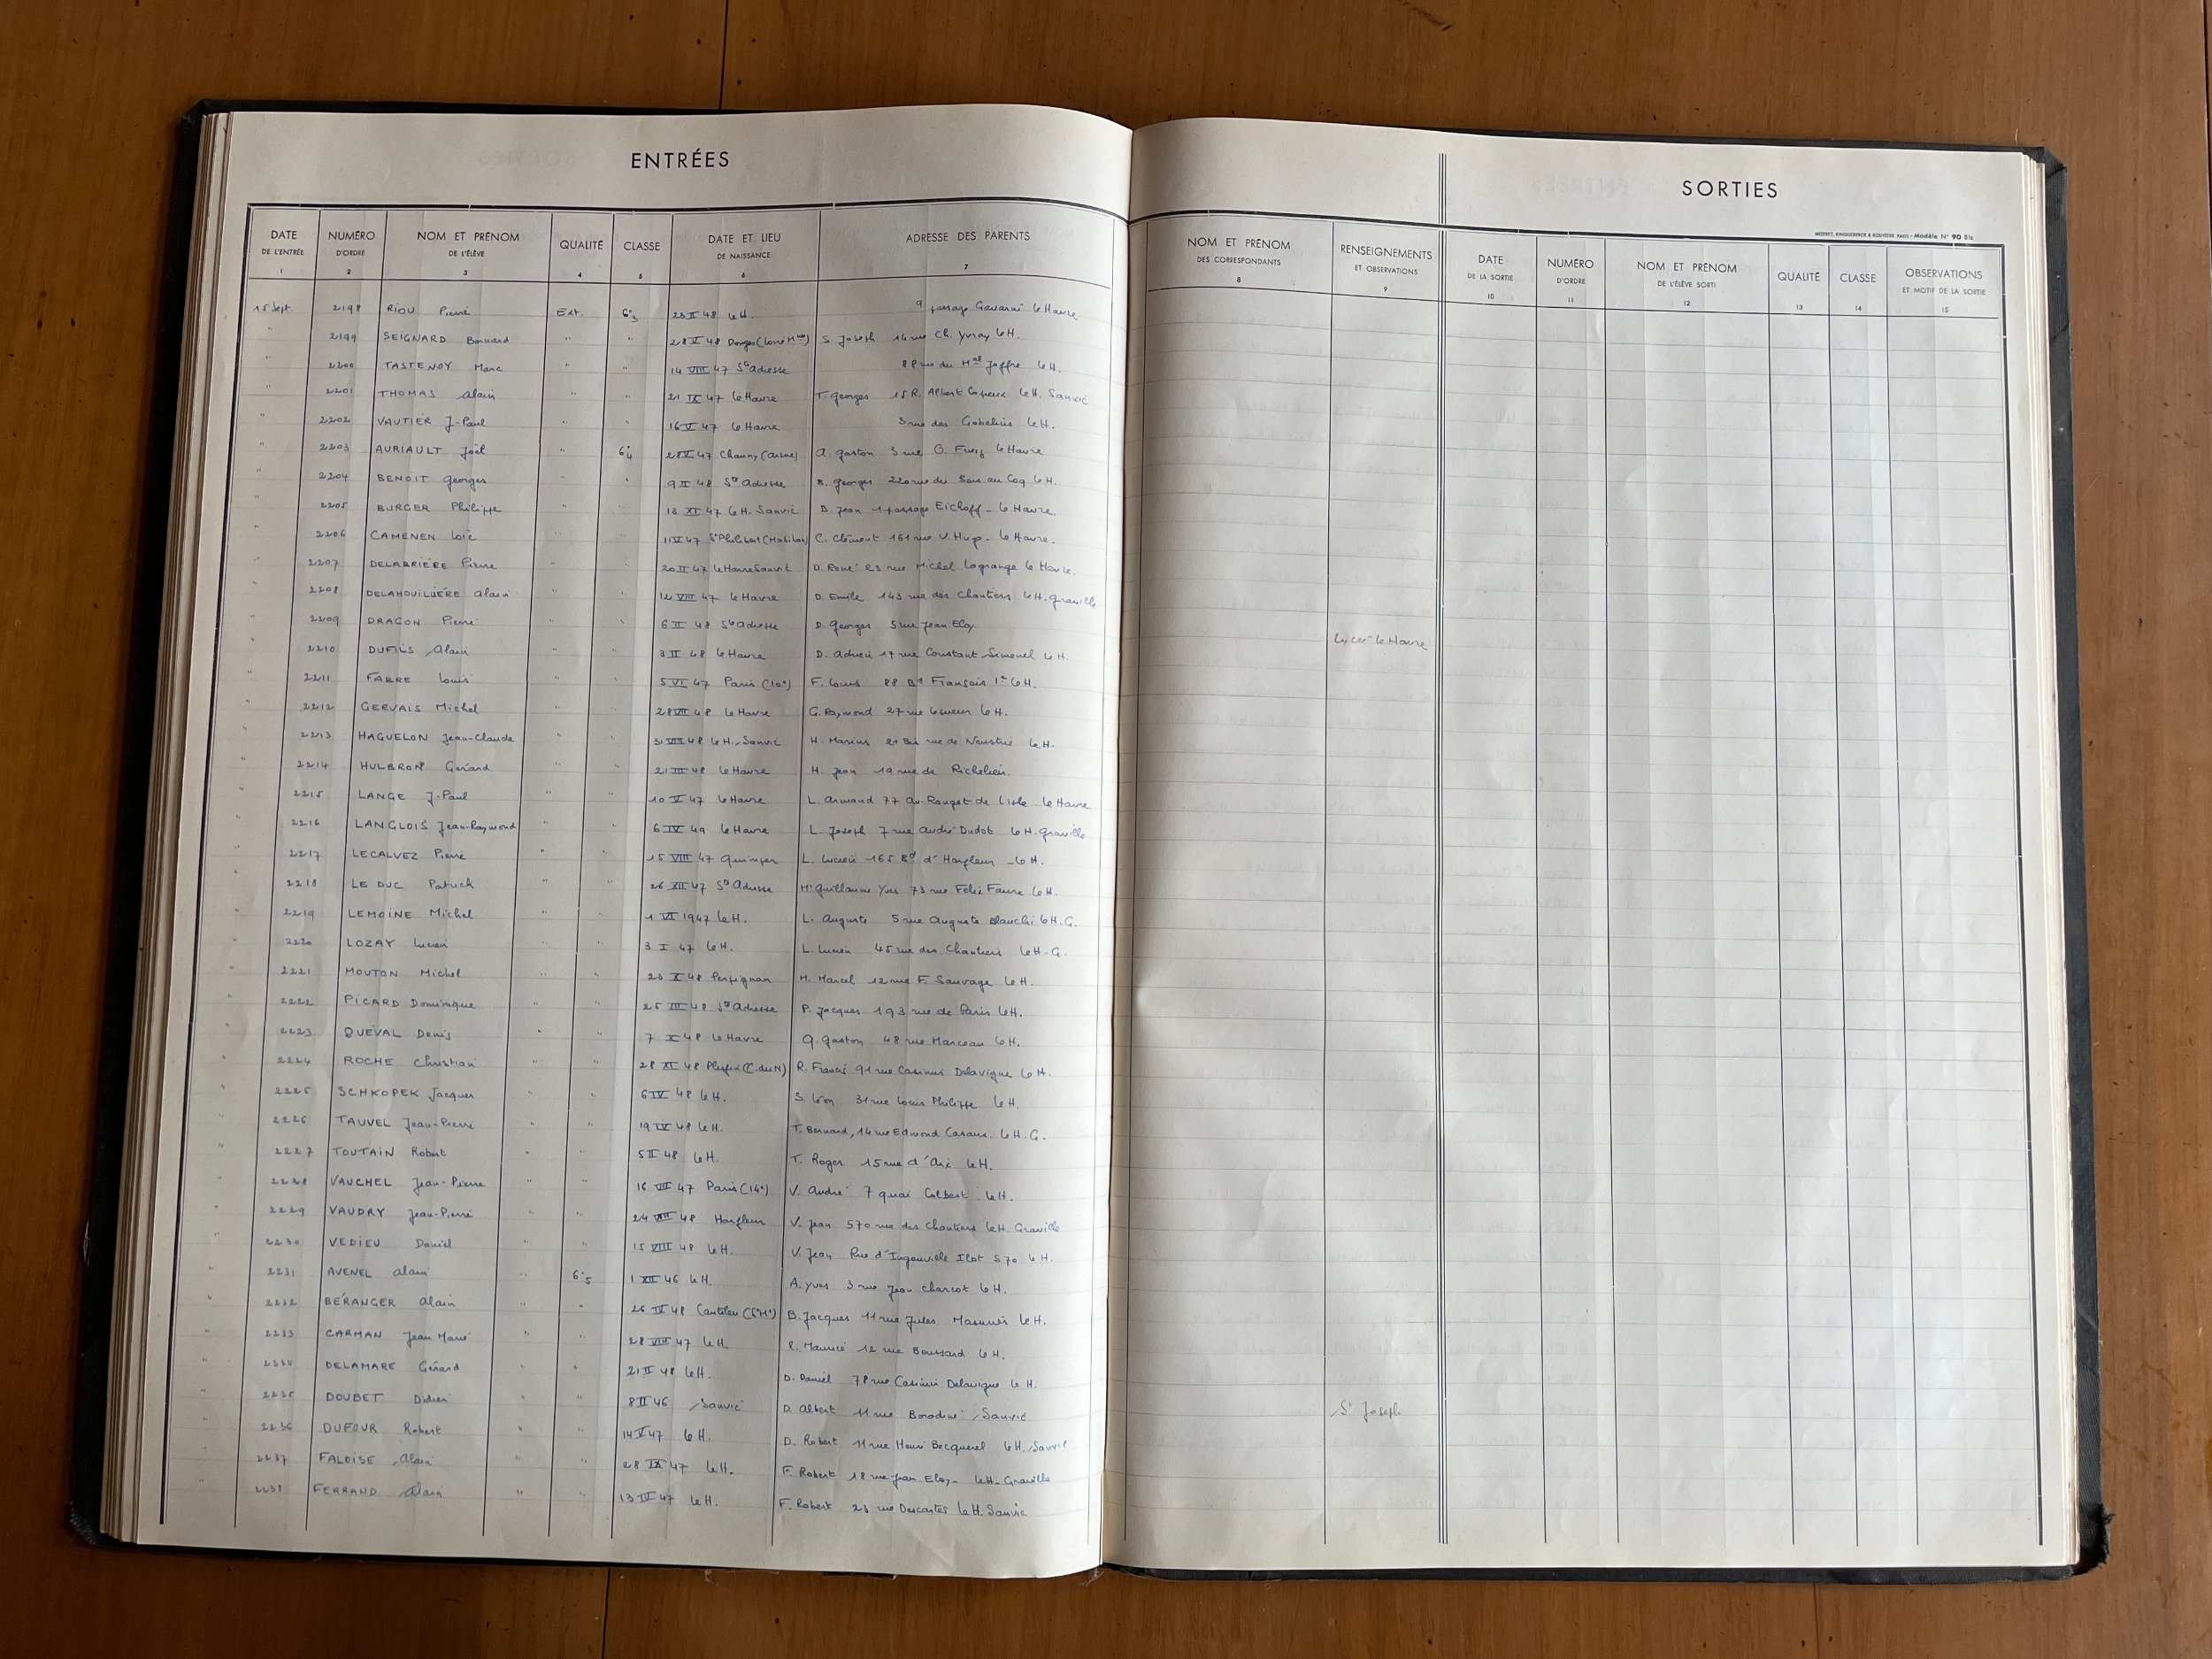 ENTRÉES
DATE DE L'ENTRÉE 1 NUMÉRO D'ORDRE 2 NOM ET PRÉNOM DE L'ÉLÈVE 3 QUALITÉ 4 CLASSE 5 DATE ET LIEU DE NAISSANCE 6 ADRESSE DES PARENTS 7
15 Sept. 2198 RIOU Pierre Ext. 6e3 23 II 48 le H. 9 passage Gavarni le Havre
" 2199 SEIGNARD Bernard " " 28 V 48 Donges (Loire Mme) S. Joseph 14 rue Ch. Yvray le H.
" 2200 TASTENOY Marc " " 14 VIII 47 Ste Adresse 88 rue du Mal Joffre le H.
" 2201 THOMAS Alain " " 21 IX 47 le Havre T. Georges 15 R. Albert le H. Sanvic
" 2202 VAUTIER J-Paul " " 16 V 47 le Havre 3 rue des Gobelins le H.
" 2203 AURIAULT Joël " 6e4 28 V 47 Chauny (Aisne) A. Gaston 3 rue G. le Havre
" 2204 BENOIT Georges " " 9 II 48 Ste Adresse B. Georges 220 rue du Bois au Coq le H.
" 2205 BURGER Philippe " " 18 XI 47 le H. Sanvic D. Jean 1 passage Eichoff - le Havre.
" 2206 CAMENEN Loïc " " 11 VI 47 St Philibert (Morbihan) C. Clément 161 rue V. Hugo - le Havre.
" 2207 DELABRIÈRE Pierre " " 20 II 47 le Havre Sanvic D. René 23 rue Michel Lagrange le Havre.
" 2208 DELAHOULLIÈRE Alain " " 12 VIII 47 le Havre D. Emile 143 rue des Chantiers le H. Graville
" 2209 DRAGON Pierre " " 6 II 48 Ste Adresse D. Georges 5 rue Jean Eloy
" 2210 DUFILS Alain " " 3 II 48 le Havre D. Adrien 17 rue Constant Simenel le H.
" 2211 FABRE Louis " " 5 VI 47 Paris (10e) F. Louis 88 Bd François 1er le H.
" 2212 GERVAIS Michel " " 28 VII 48 le Havre G. Raymond 27 rue Lesueur le H.
" 2213 HAGUELON Jean-Claude " " 31 VIII 48 le H. Sanvic H. Marius 21 Bis rue de Neustrie le H.
" 2214 HULBRON Gérard " " 21 III 48 le Havre H. Jean 19 rue de Richelieu.
" 2215 LANGE J-Paul " " 10 V 47 le Havre L. Armand 77 av. Rouget de Lisle le Havre
" 2216 LANGLOIS Jean-Raymond " " 6 IV 49 le Havre L. Joseph 7 rue André Dudob le H. Graville
" 2217 LECALVEZ Pierre " " 15 VIII 47 Quimper L. Lucien 165 Bd d'Harfleur - le H.
" 2218 LE DUC Patrick " " 26 XII 47 Ste Adresse Mr Guillaume Yves 73 rue Félix Faure le H.
" 2219 LEMOINE Michel " " 1 VI 1947 le H. L. Auguste 5 rue Auguste Blanchi le H. G.
" 2220 LOZAY Lucien " " 3 I 47 le H. L. Lucien 45 rue des Chantiers le H. G.
" 2221 MOUTON Michel " " 23 X 48 Perpignan M. Marcel 12 rue F. Sauvage le H.
" 2222 PICARD Dominique " " 25 III 48 Ste Adresse P. Jacques 193 rue de Paris le H.
" 2223 QUEVAL Denis " " 7 X 48 le Havre Q. Gaston 48 rue Marceau le H.
" 2224 ROCHE Christian " " 28 XI 48 (C. du N) R. Francis 91 rue Casimir Delavigne le H.
" 2225 SCHKOPEK Jacques " " 6 IV 48 le H. S. Léon 31 rue Louis Philippe le H.
" 2226 TAUVEL Jean-Pierre " " 19 IV 48 le H. T. Bernard, 14 rue Edmond Casaux. le H. G.
" 2227 TOUTAIN Robert " " 5 II 48 le H. T. Roger 15 rue d' le H.
" 2228 VAUCHEL Jean-Pierre " " 16 VII 47 Paris (14e) V. André 7 quai Colbert le H.
" 2229 VAUDRY Jean-Pierre " " 24 VIII 48 Harfleur V. Jean 570 rue des Chantiers le H. Graville
" 2230 VEDIEU Daniel " " 15 VIII 48 le H. V. Jean Rue d'Ingouville Ilot S70 le H.
" 2231 AVENEL Alain " 6e5 1 XII 46 le H. A. Yves 3 rue Jean Charcot le H.
" 2232 BÉRANGER Alain " " 26 IV 48 Canteleu (Sne Me) B. Jacques 11 rue Jules Masurier le H.
" 2233 CARMAN Jean Marie " " 28 VIII 47 le H. C. Maurice 12 rue Boussard le H.
" 2234 DELAMARE Gérard " " 21 II 48 le H. D. Daniel 78 rue Casimir Delavigne le H.
" 2235 DOUBET Didier " " 8 II 46 Sanvic D. Albert 11 rue Borodine Sanvic
" 2236 DUFOUR Robert " " 14 V 47 le H. D. Robert 11 rue Henri Becquerel le H. Sanvic
" 2237 FALOISE Alain " " 28 IX 47 le H. F. Robert 18 rue Jean Eloy - le H. Graville
" 2238 FERRAND Alain " " 13 IV 47 le H. F. Robert 23 rue Descartes le H. Sanvic
SORTIES
MIZERET, RINGUEBERCK & ROUVIÈRE PARIS - Modèle N° 90 Bis
NOM ET PRÉNOM DES CORRESPONDANTS 8 RENSEIGNEMENTS ET OBSERVATIONS 9 DATE DE LA SORTIE 10 NUMÉRO D'ORDRE 11 NOM ET PRÉNOM DE L'ÉLÈVE SORTI 12 QUALITÉ 13 CLASSE 14 OBSERVATIONS ET MOTIF DE LA SORTIE 15
Lycée le Havre
St Joseph